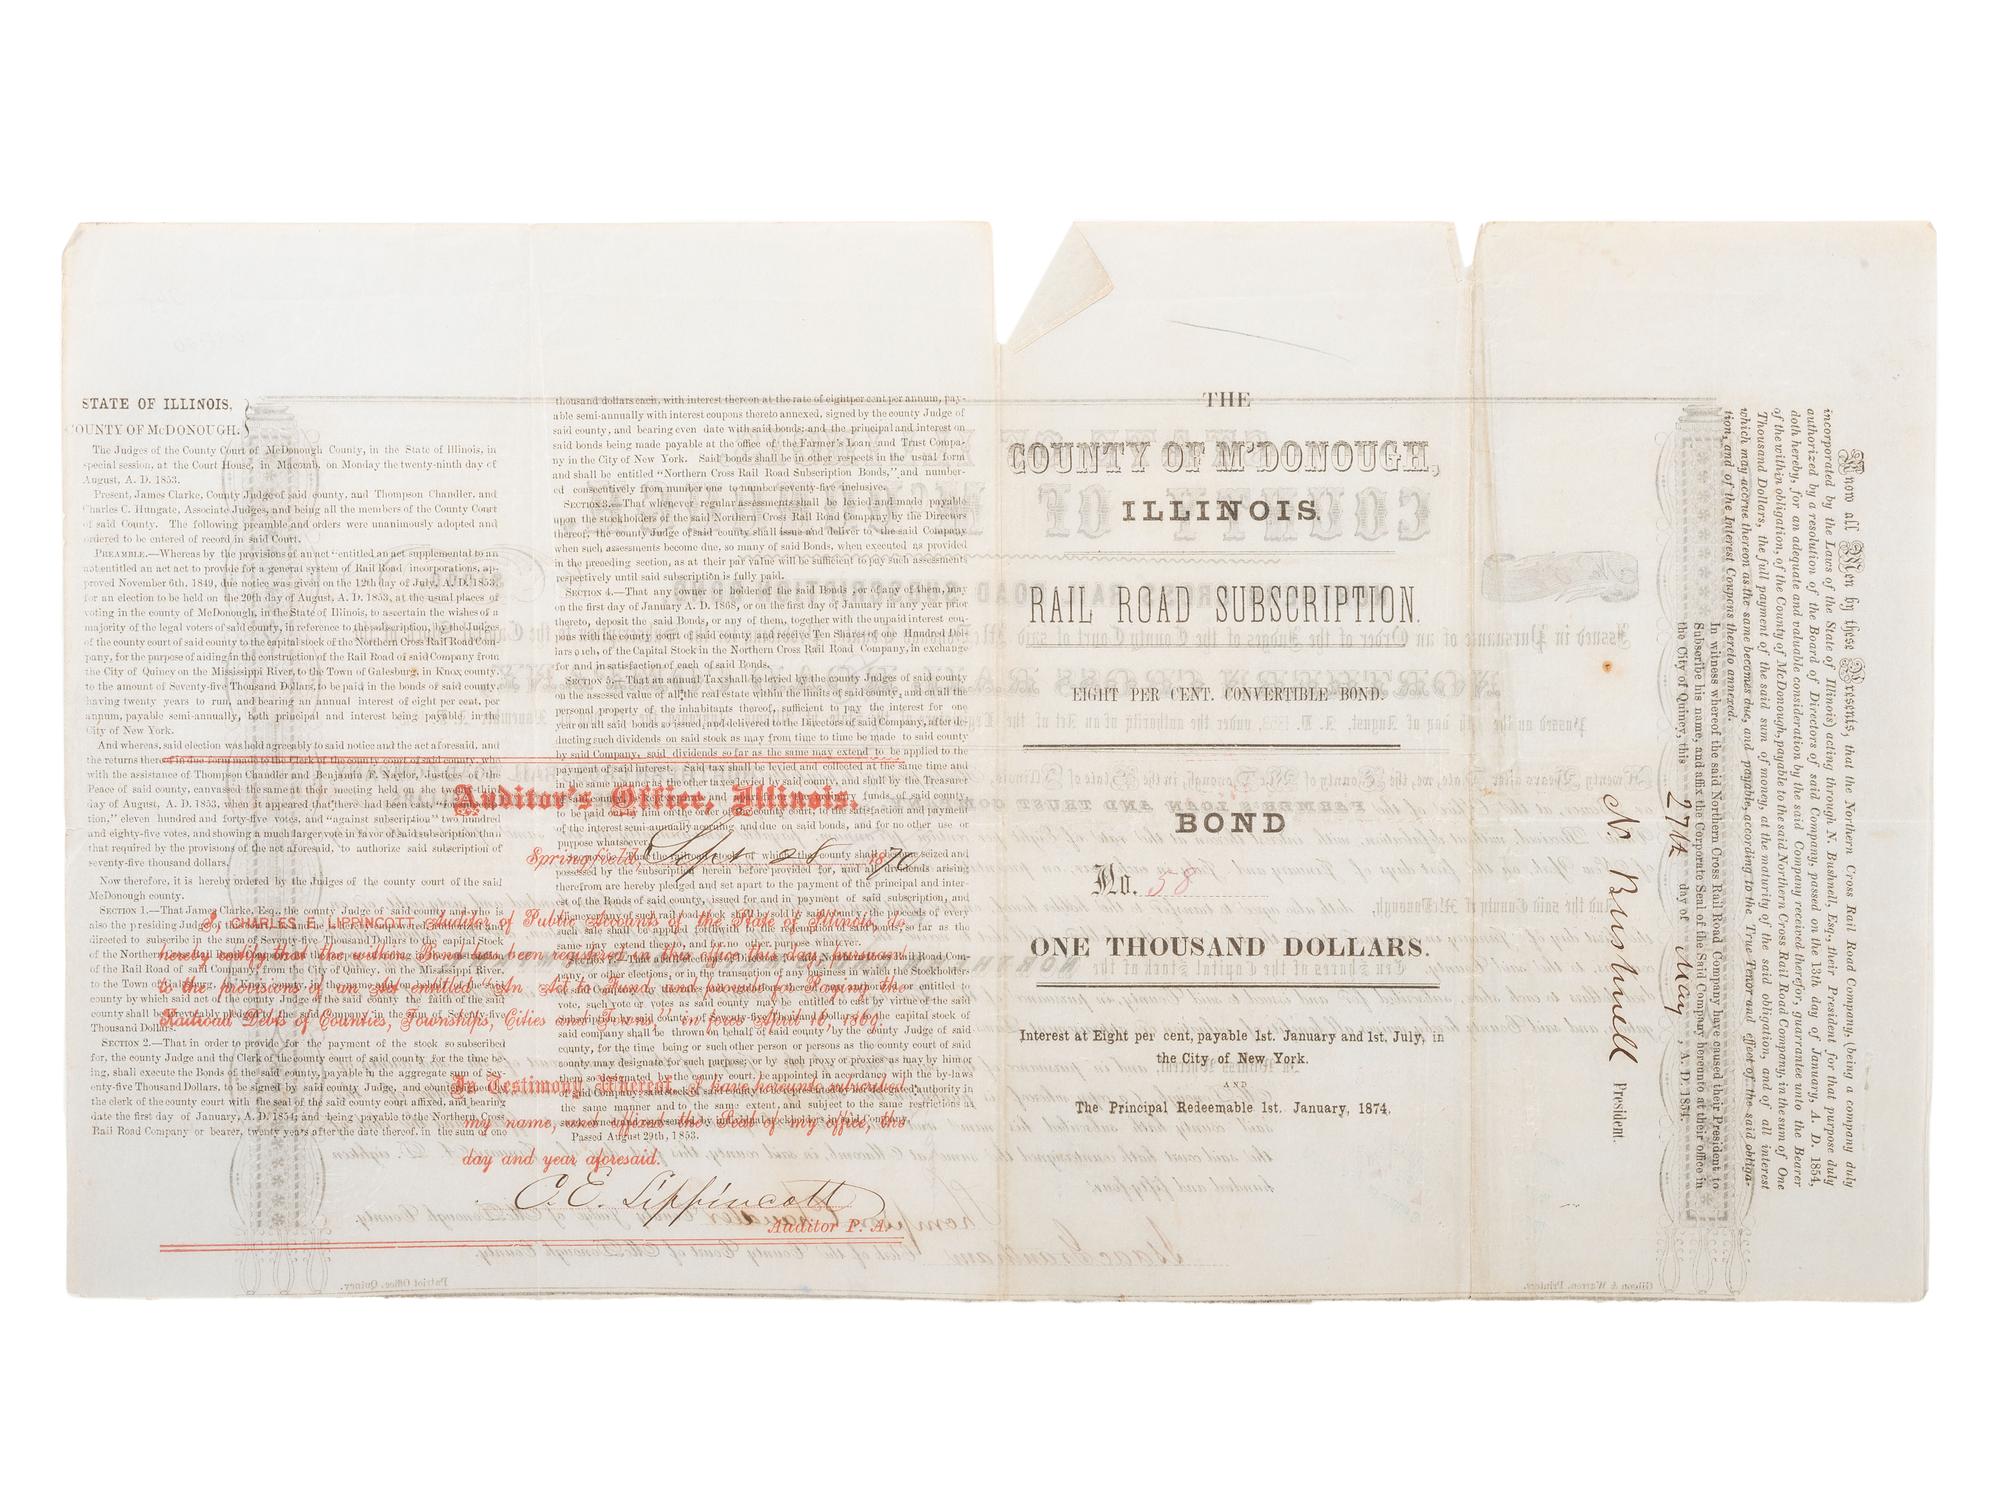 STATE OF ILLINOIS,
COUNTY OF McDONOUGH.
The Judges of the County Court of McDonough County, in the State of Illinois, in
special session, at the Court House, in Macomb, on Monday the twenty-ninth day of
August, A. D. 1853.
Present, James Clarke, County Judge of said county, and Thompson Chandler, and
Charles C. Hungate, Associate Judges, and being all the members of the County Court
of said County. The following preamble and orders were unanimously adopted and
ordered to be entered of record in said Court.
PREAMBLE.—Whereas by the provisions of an act "entitled an act supplemental to an
act entitled an act to provide for a general system of Rail Road incorporations, ap-
proved November 6th, 1849, due notice was given on the 12th day of July, A. D. 1853,
for an election to be held on the 20th day of August, A. D. 1853, at the usual places of
voting in the county of McDonough, in the State of Illinois, to ascertain the wishes of a
majority of the legal voters of said county, in reference to the subscription, by the Judges
of the county court of said county to the capital stock of the Northern Cross Rail Road Com-
pany, for the purpose of aiding in the construction of the Rail Road of said Company from
the City of Quincy on the Mississippi River, to the Town of Galesburg, in Knox county,
to the amount of Seventy-five Thousand Dollars, to be paid in the bonds of said county,
having twenty years to run, and bearing an annual interest of eight per cent, per
annum, payable semi-annually, both principal and interest being payable, in the
City of New York.
And whereas, said election was held agreeably to said notice and the act aforesaid, and
the returns thereof in due form made to the Clerk of the county court of said county, who
with the assistance of Thompson Chandler and Benjamin F. Naylor, Justices of the
Peace of said county, canvassed the same at their meeting held on the twenty-third
day of August, A. D. 1853, when it appeared that there had been cast, "for subscrip-
tion," eleven hundred and forty-five votes, and "against subscription" two hundred
and eighty-five votes, and showing a much larger vote in favor of said subscription than
that required by the provisions of the act aforesaid, to authorize said subscription of
seventy-five thousand dollars.
Now therefore, it is hereby ordered by the Judges of the county court of the said
McDonough county.
SECTION 1.—That James Clarke, Esq., the county Judge of said county and who is
also the presiding Judge
directed to subscribe in the sum of Seventy-five Thousand Dollars to the capital Stock
of the Northern
of the Rail Road of said Company, from the City of Quincy, on the Mississippi River,
to the Town of Galesburg, in Knox county,
county by which said act of the county Judge of the said county the faith of the said
county shall be irrevocably pledged to the in the sum of Seventy-five
Thousand Dollars.
SECTION 2.—That in order to provide for the payment of the stock so subscribed
for, the county Judge and the Clerk of the county court of said county for the time be-
ing, shall execute the Bonds of the said county, payable in the aggregate sum of Sev-
enty-five Thousand Dollars, to be signed by said county Judge, and countersigned by
the clerk of the county court with the seal of the said county court affixed, and bearing
date the first day of January, A. D. 1854; and being payable to the Northern Cross
Rail Road Company or bearer, twenty years after the date thereof, in the sum of one
thousand dollars each, with interest thereon at the rate of eight per cent per annum, pay-
able semi-annually with interest coupons thereto annexed, signed by the county Judge of
said county, and bearing even date with said bonds; and the principal and interest on
said bonds being made payable at the office of the Farmer's Loan and Trust Compa-
ny in the City of New York. Said bonds shall be in other respects in the usual form
and shall be entitled "Northern Cross Rail Road Subscription Bonds," and number-
ed consecutively from number one to number seventy-five inclusive.
SECTION 3.—That whenever regular assessments shall be levied and made payable
upon the stockholders of the said Northern Cross Rail Road Company by the Directors
thereof, the county Judge of said county shall issue and deliver to the said Company
when such assessments become due, so many of said Bonds, when executed as provided
in the preceding section, as at their par value will be sufficient to pay such assessments
respectively until said subscription is fully paid.
SECTION 4.—That any owner or holder of the said Bonds, or of any of them, may
on the first day of January A. D. 1868, or on the first day of January in any year prior
thereto, deposit the said Bonds, or any of them, together with the unpaid interest cou-
pons with the county court of said county and receive Ten Shares of one Hundred Dol-
lars each, of the Capital Stock in the Northern Cross Rail Road Company, in exchange
for and in satisfaction of each of said Bonds.
SECTION 5.—That an annual Tax shall be levied by the county Judges of said county
on the assessed value of all the real estate within the limits of said county, and on all the
personal property of the inhabitants thereof, sufficient to pay the interest for one
year on all said bonds so issued, and delivered to the Directors of said Company, after de-
ducting such dividends on said stock as may from time to time be made to said county
by said Company, said dividends so far as the same may extend to be applied to the
payment of said interest. Said tax shall be levied and collected at the same time and
in the same manner as the other taxes levied by said county, and shall by the Treasurer
funds of said county,
to be paid out by him on the order of the county court, to the satisfaction and payment
of the interest semi-annually accruing and due on said bonds, and for no other use or
purpose whatsoever.
the railroad stock of which the county shall become seized and
possessed by the subscription herein before provided for, and all dividends arising
therefrom are hereby pledged and set apart to the payment of the principal and inter-
est of the Bonds of said county, issued for and in payment of said subscription, and
if any of such rail road stock shall be sold by said county, the proceeds of every
such sale shall be applied forthwith to the redemption of said bonds, so far as the
same may extend thereto, and for no other purpose whatever.
Rail Road Com-
pany, or other elections, or in the transaction of any business in which the Stockholders
or entitled to
vote, such vote or votes as said county may be entitled to cast by virtue of the said
subscription by said county, of Seventy-five Thousand Dollars to the capital stock of
said company shall be thrown on behalf of said county by the county Judge of said
county, for the time being or such other person or persons as the county court of said
county may designate for such purpose; or by such proxy or proxies as may by him or
them so designated by the county court, be appointed in accordance with the by-laws
of said Company; authority in
the same manner and to the same extent, and subject to the same restrictions as
Passed August 29th, 1853.
Auditor's Office, Illinois.
Springfield, Sept 28 1870
I, CHARLES E. LIPPINCOTT, Auditor of Public Accounts of the State of Illinois, do
hereby certify that the within Bond has been registered in this office this day, pursuant
to the provisions of an Act entitled "An Act to Fund and provide for Paying the
Railroad Debts of Counties, Townships, Cities and Towns," in force April 16, 1869.
In Testimony Whereof, I have hereunto subscribed
my name, and affixed the Seal of my office, the
day and year aforesaid.
C. E. Lippincott
Auditor P. A.
THE
COUNTY OF M'DONOUGH,
ILLINOIS.
RAIL ROAD SUBSCRIPTION.
EIGHT PER CENT. CONVERTIBLE BOND.
BOND
No. 58
ONE THOUSAND DOLLARS.
Interest at Eight per cent, payable 1st. January and 1st. July, in
the City of New York.
AND
The Principal Redeemable 1st. January, 1874.
Know all Men by these Presents, that the Northern Cross Rail Road Company, (being a company duly
incorporated by the Laws of the State of Illinois) acting through N. Bushnell, Esq., their President for that purpose duly
authorized by a resolution of the Board of Directors of said Company, passed on the 13th day of January, A. D. 1854,
doth hereby, for an adequate and valuable consideration by the said Company received therefor, guarrantee unto the Bearer
of the within obligation, of the County of McDonough, payable to the said Northern Cross Rail Road Company, in the sum of One
Thousand Dollars, the full payment of the said sum of money, at the maturity of the said obligation, and of all interest
which may accrue thereon as the same becomes due, and payable, according to the True Tenor and effect of the said obliga-
tion, and of the Interest Coupons thereto annexed.
In witness whereof the said Northern Cross Rail Road Company have caused their President to
Subscribe his name, and affix the Corporate Seal of the Said Company hereunto at their office in
the City of Quincy, this 27th day of May, A. D. 1854.
N. Bushnell President.
Gilson & Warren, Printers,
Patriot Office, Quincy.